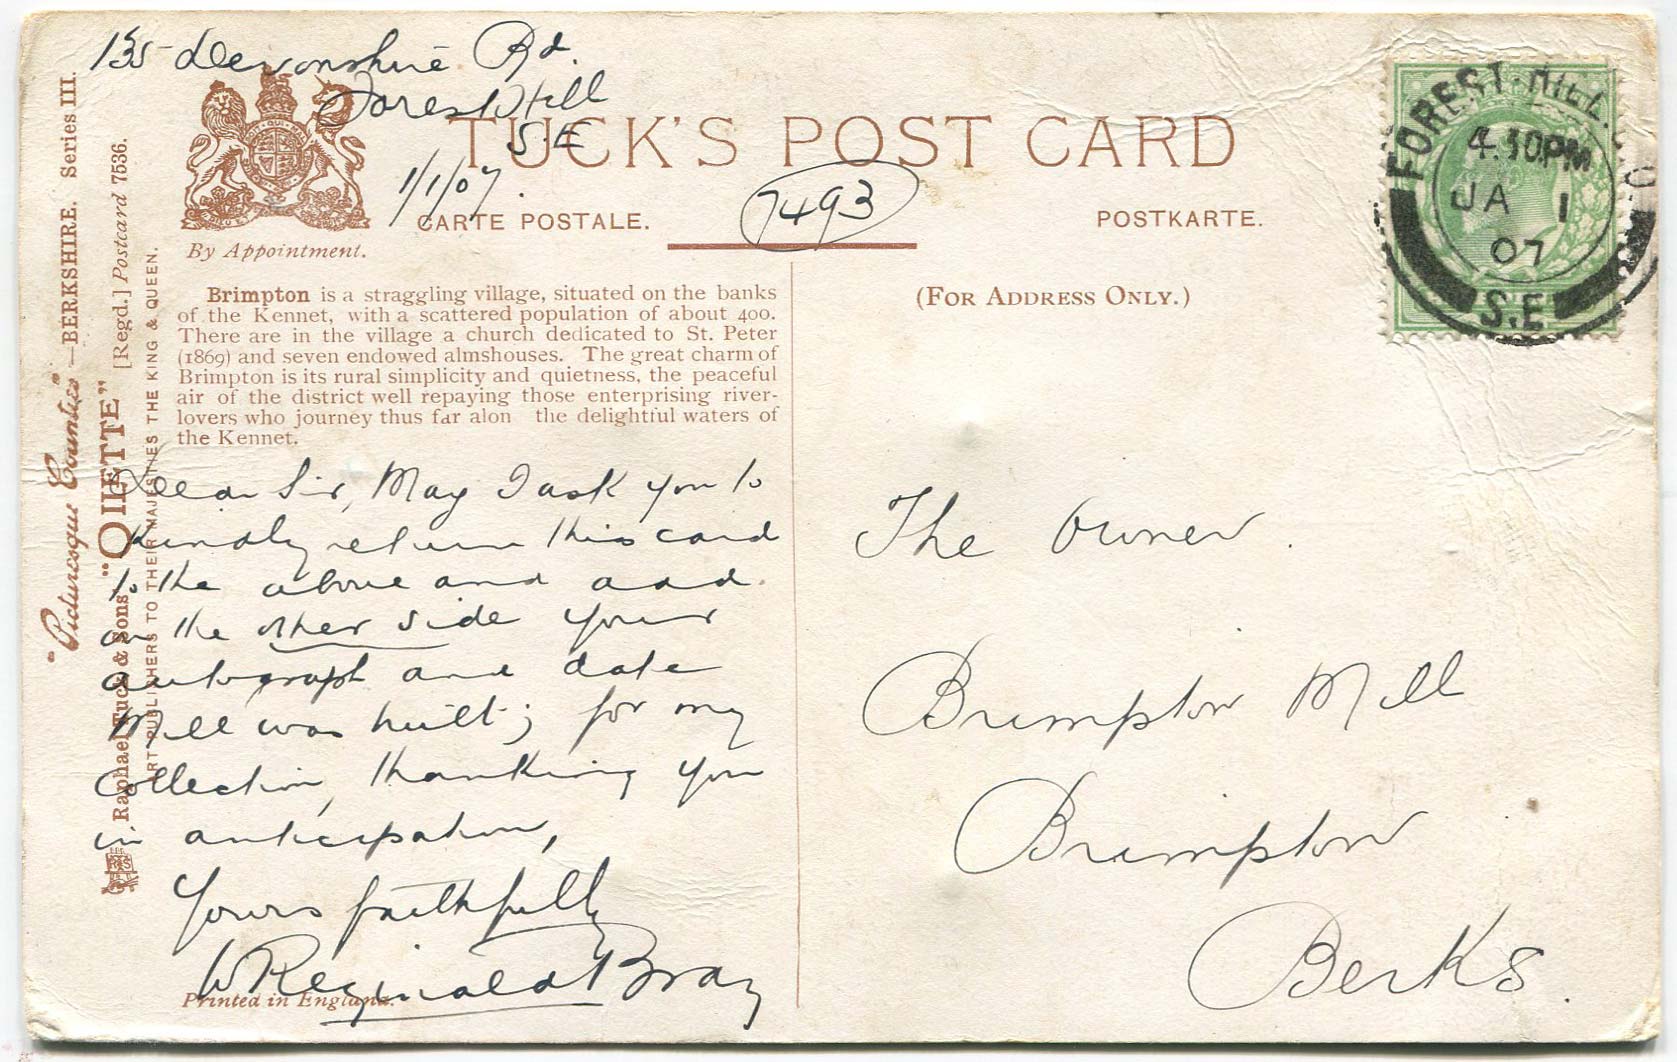 135 Devonshire Rd.
Forest Hill
S.E
1/1/07.
TUCK'S POST CARD
CARTE POSTALE.
7493
POSTKARTE.
By Appointment.
(FOR ADDRESS ONLY.)
FOREST·HILL.
4.30PM
JA 1
07
S.E
Brimpton is a straggling village, situated on the banks
of the Kennet, with a scattered population of about 400.
There are in the village a church dedicated to St. Peter
(1869) and seven endowed almshouses. The great charm of
Brimpton is its rural simplicity and quietness, the peaceful
air of the district well repaying those enterprising river-
lovers who journey thus far alon the delightful waters of
the Kennet.
Dear Sir, May I ask you to
kindly return this card
to the above and add.
on the other side your
autograph and date
Mill was built; for my
collection, thanking you
in anticipation,
Yours faithfully
W Reginald Bray
Printed in England.
The Owner.
Brimpton Mill
Brimpton
Berks.
"Picturesque Counties"—BERKSHIRE. Series III.
Raphael Tuck & Sons' "OILETTE" [Regd.] Postcard 7536.
ART PUBLISHERS TO THEIR MAJESTIES THE KING & QUEEN.